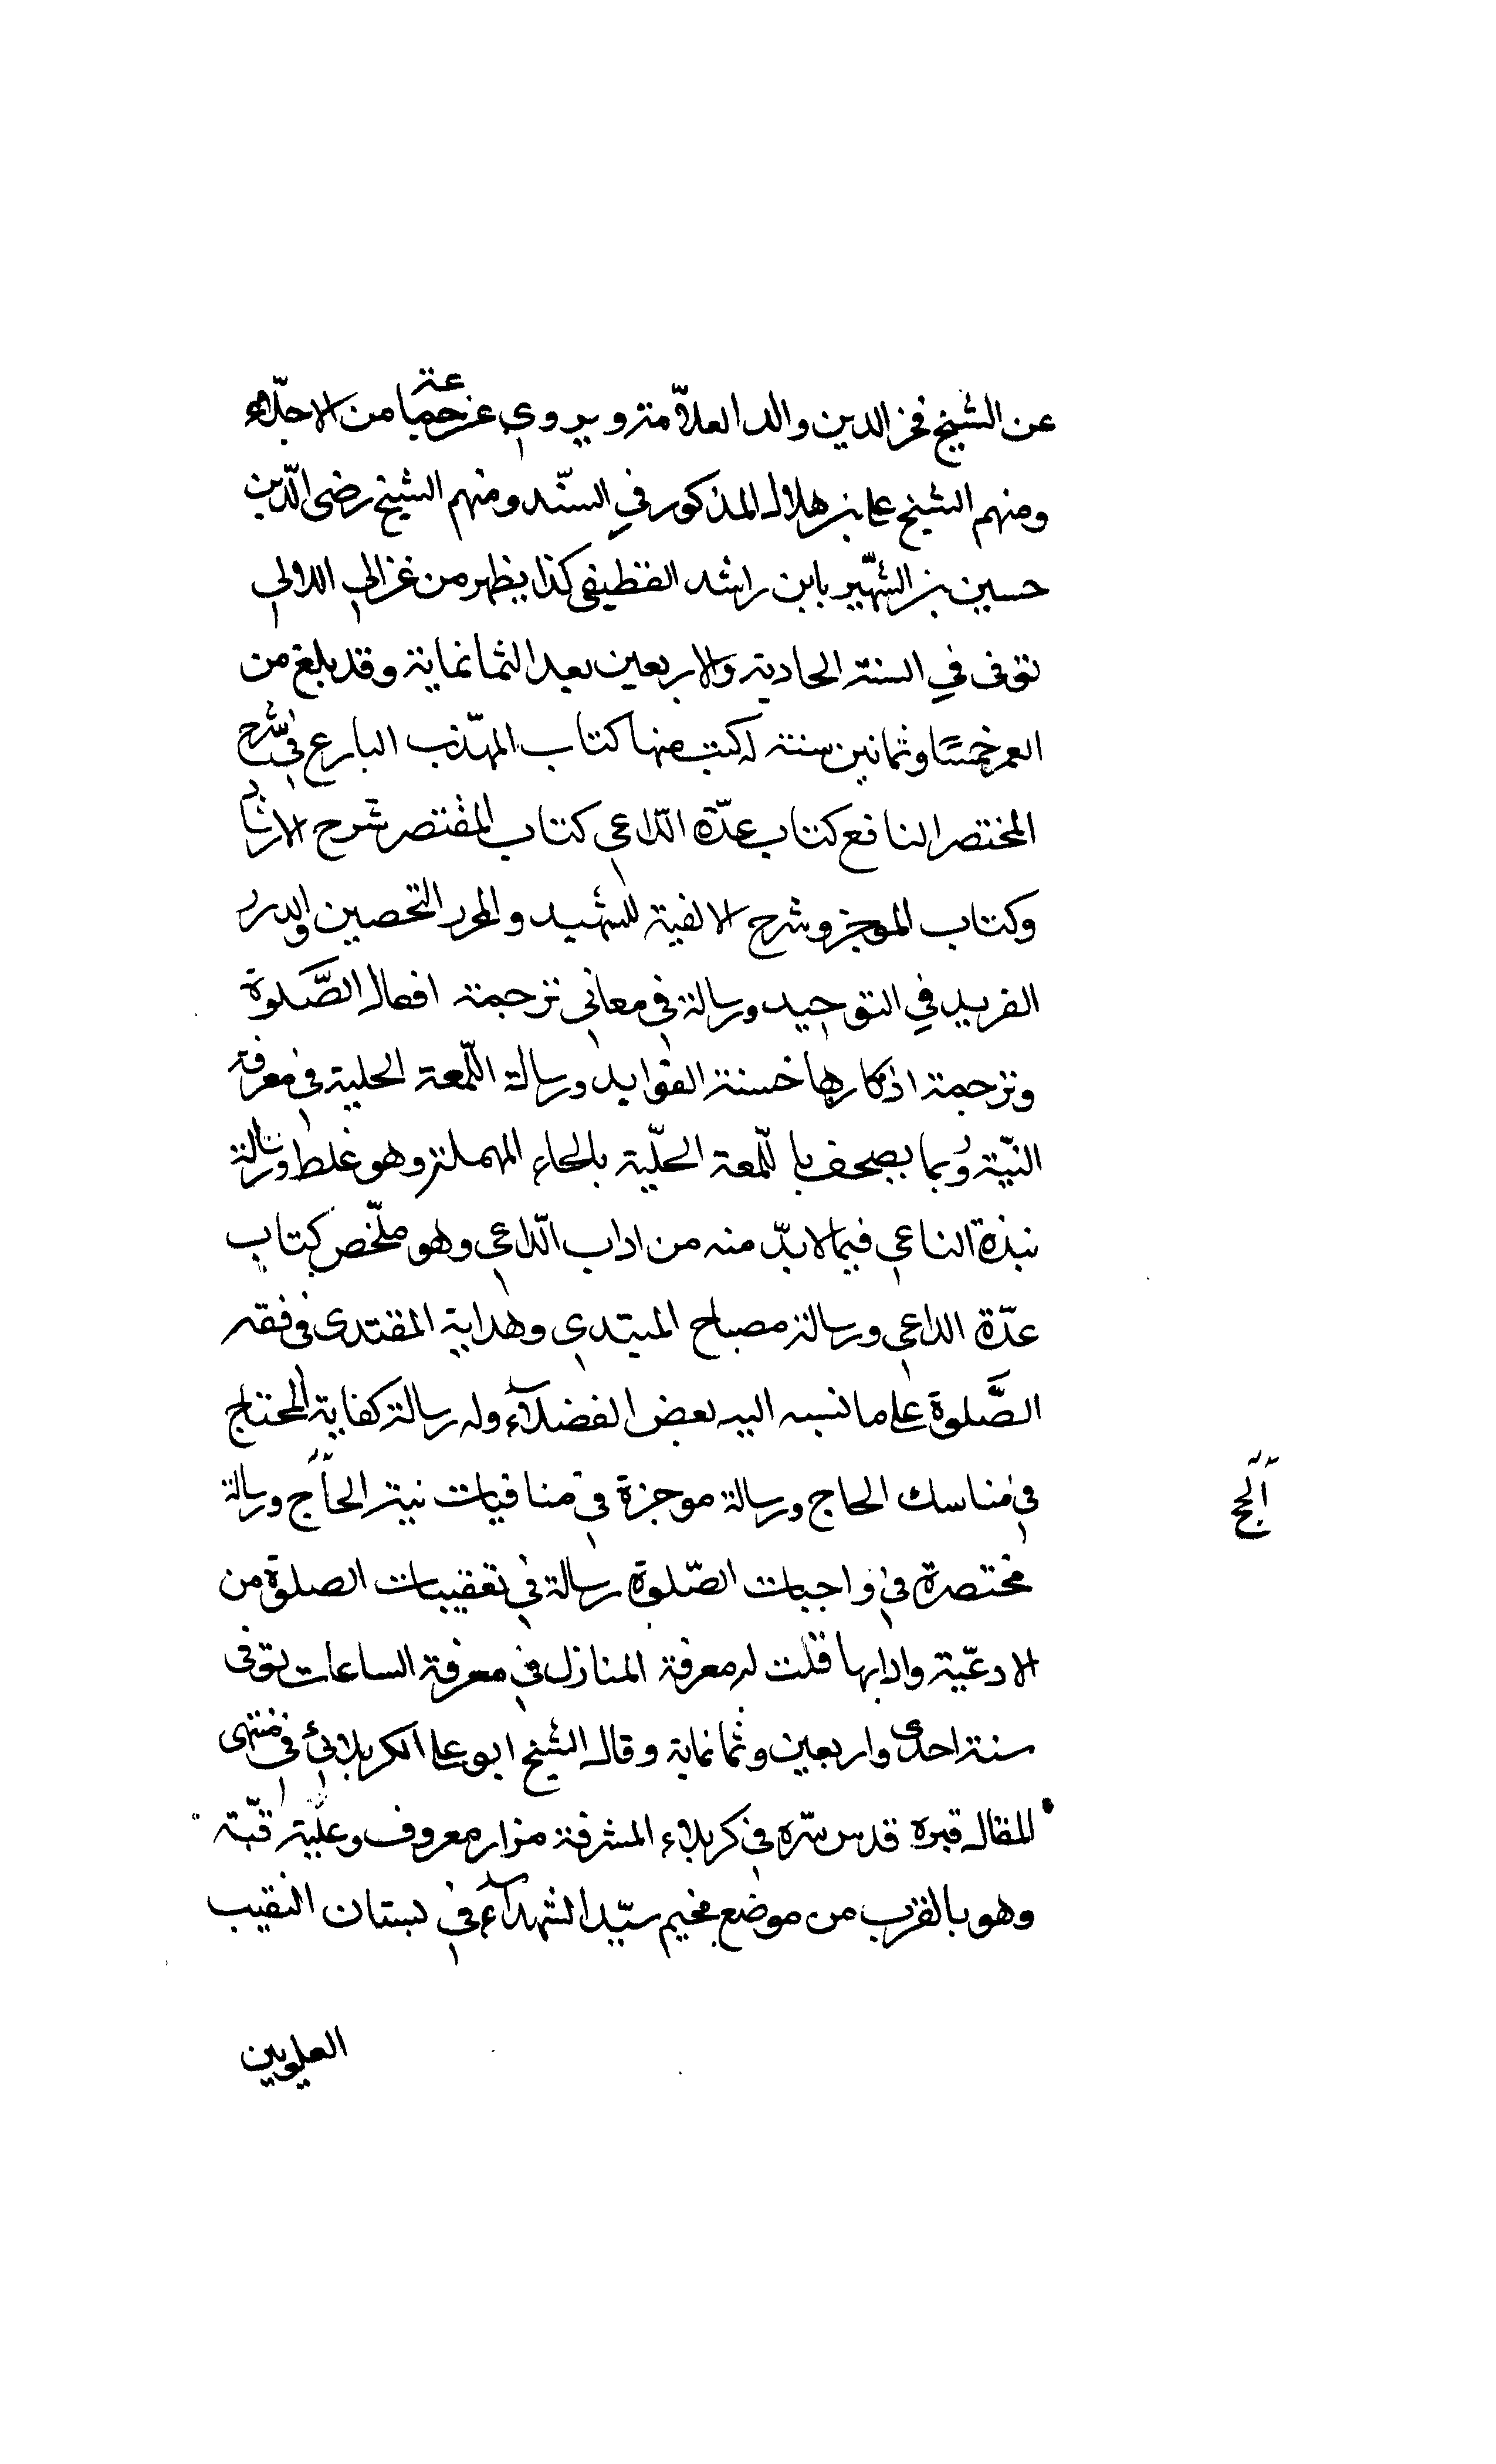 عن الشيخ فخر الدين والد العلاّمة ويروى عن جماعة من الاجلّاء
ومنهم الشيخ على بن هلال المذكور في السند ومنهم الشيخ رضى الدّين
حسين بن الشهير بابن راشد القطيفى كذا يظهر من غزالى اللالى
توفى في السنة الحادية والاربعين بعد الثمانماية وقد بلغ من
العمر خمسًا وثمانين سنة له كتب منها كتاب المهذّب البارع في شرح
المختصر النافع كتاب عدّة الدّاعى كتاب المقتصر شرح الارشاد
وكتاب الموجز وشرح الالفية للشهيد والمحرر التحصين والدرر
الفريد في التوحيد ورسالة في معاني ترجمة افعال الصَّلوة
وترجمة اذكارها حسنة الفوايد ورسالة اللّمعة الحلية في معرفة
النيّة وربما يصحف باللّمعة الحلّية بالحاء المهملة وهو غلط ورسالة
نبذة الناعى فيما لابدّ منه من اداب الدّاعى وهو ملّخص كتاب
عدّة الداعى ورسالة مصباح المبتدى وهداية المقتدى في فقه
الصَّلوة على ما نسبه اليه بعض الفضلآء وله رسالة كفاية المحتاج
في مناسك الحاج ورسالة موجزة في منافيات نية الحآج ورسالة
الحج
مختصرة في واجبات الصّلوة رسالة في تعقيبات الصلوة من
الادعّية وادابها قلت له معرفة المنازل في معرفة الساعات توفى
سنة احدى واربعين وثمانماية وقال الشيخ ابو على الكربلائى في منتهى
المقال قبره قدس سّره في كربلاء المشرفة مزار معروف وعليه قبّة
وهو بالقرب من موضع مخيم سيّد الشهدآء في بستان النقيب
العلويين